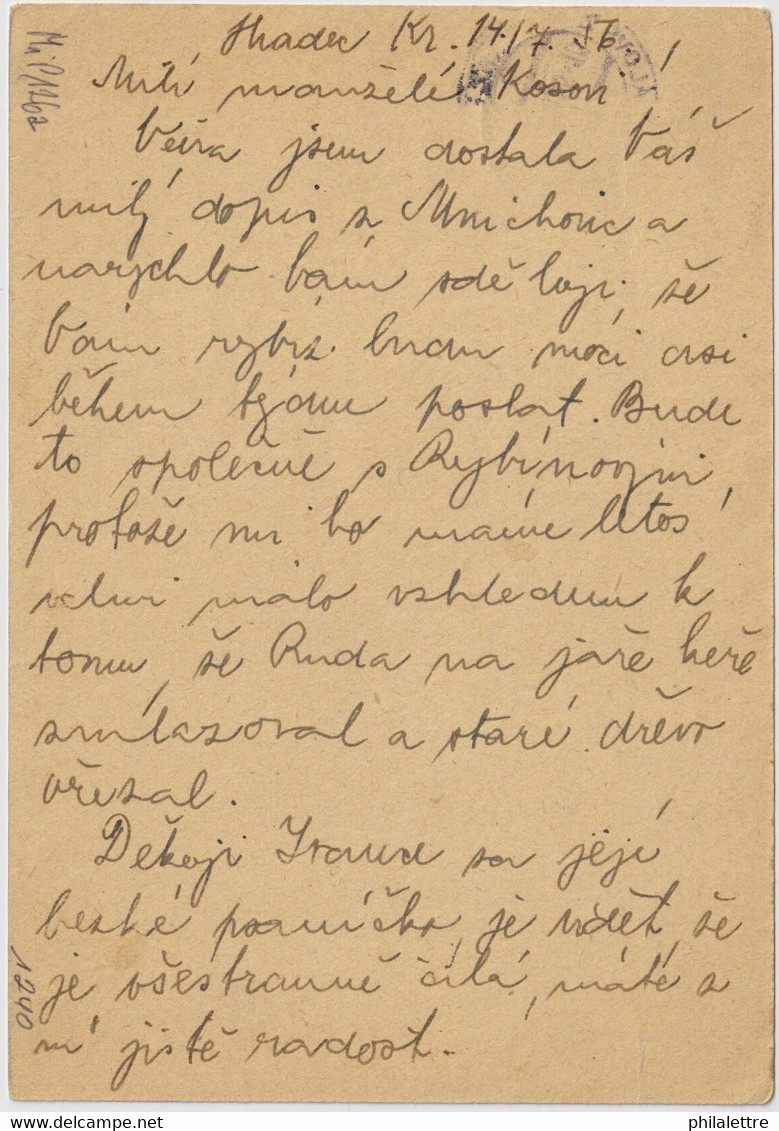 Hradec Kr. 14./7. 56.
Milí manželé Kosovi,
včera jsem dostala Váš
milý dopis z Mnichovic a
narychlo Vám sděluji, že
Vám rybíz budu moci asi
během týdne poslat. Bude
to společně s Rybínovými,
protože my ho máme letos
velmi málo vzhledem k
tomu, že Ruda na jaře keře
zmlazoval a staré dřevo
vřezal.
Děkuji Ivance za její
hezké psaníčko, je vidět, že
je všestranně čilá, máte z
ní jistě radost.
Mi P/126a
1240
philalettre